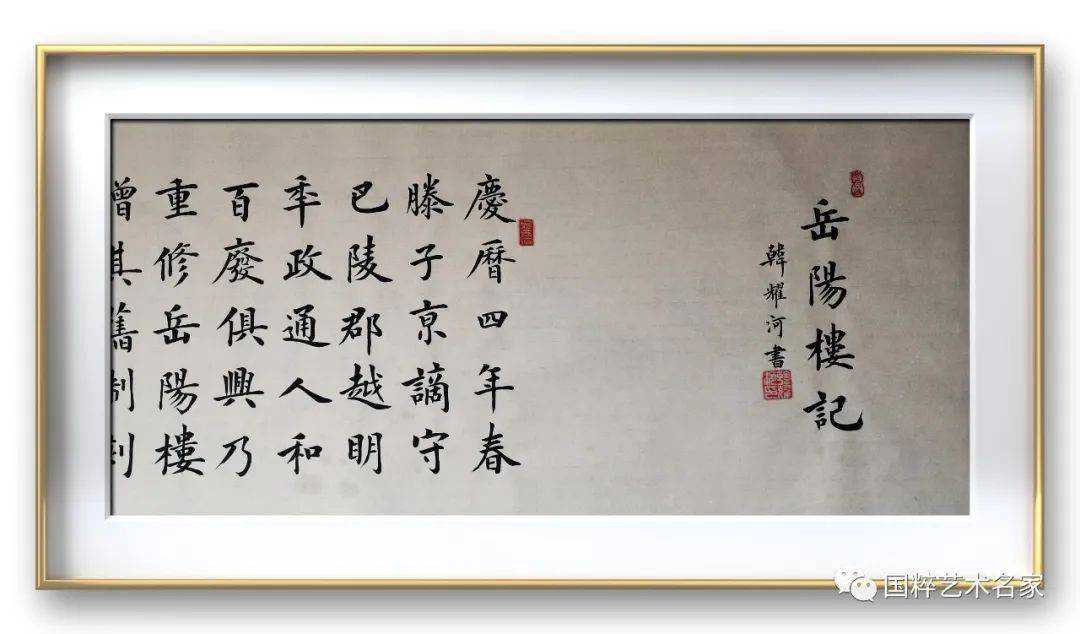 岳陽樓記
韓耀河書
慶曆四年春
滕子京謫守
巴陵郡越明
年政通人和
百廢俱興乃
重修岳陽樓
增其舊制刻
国粹艺术名家